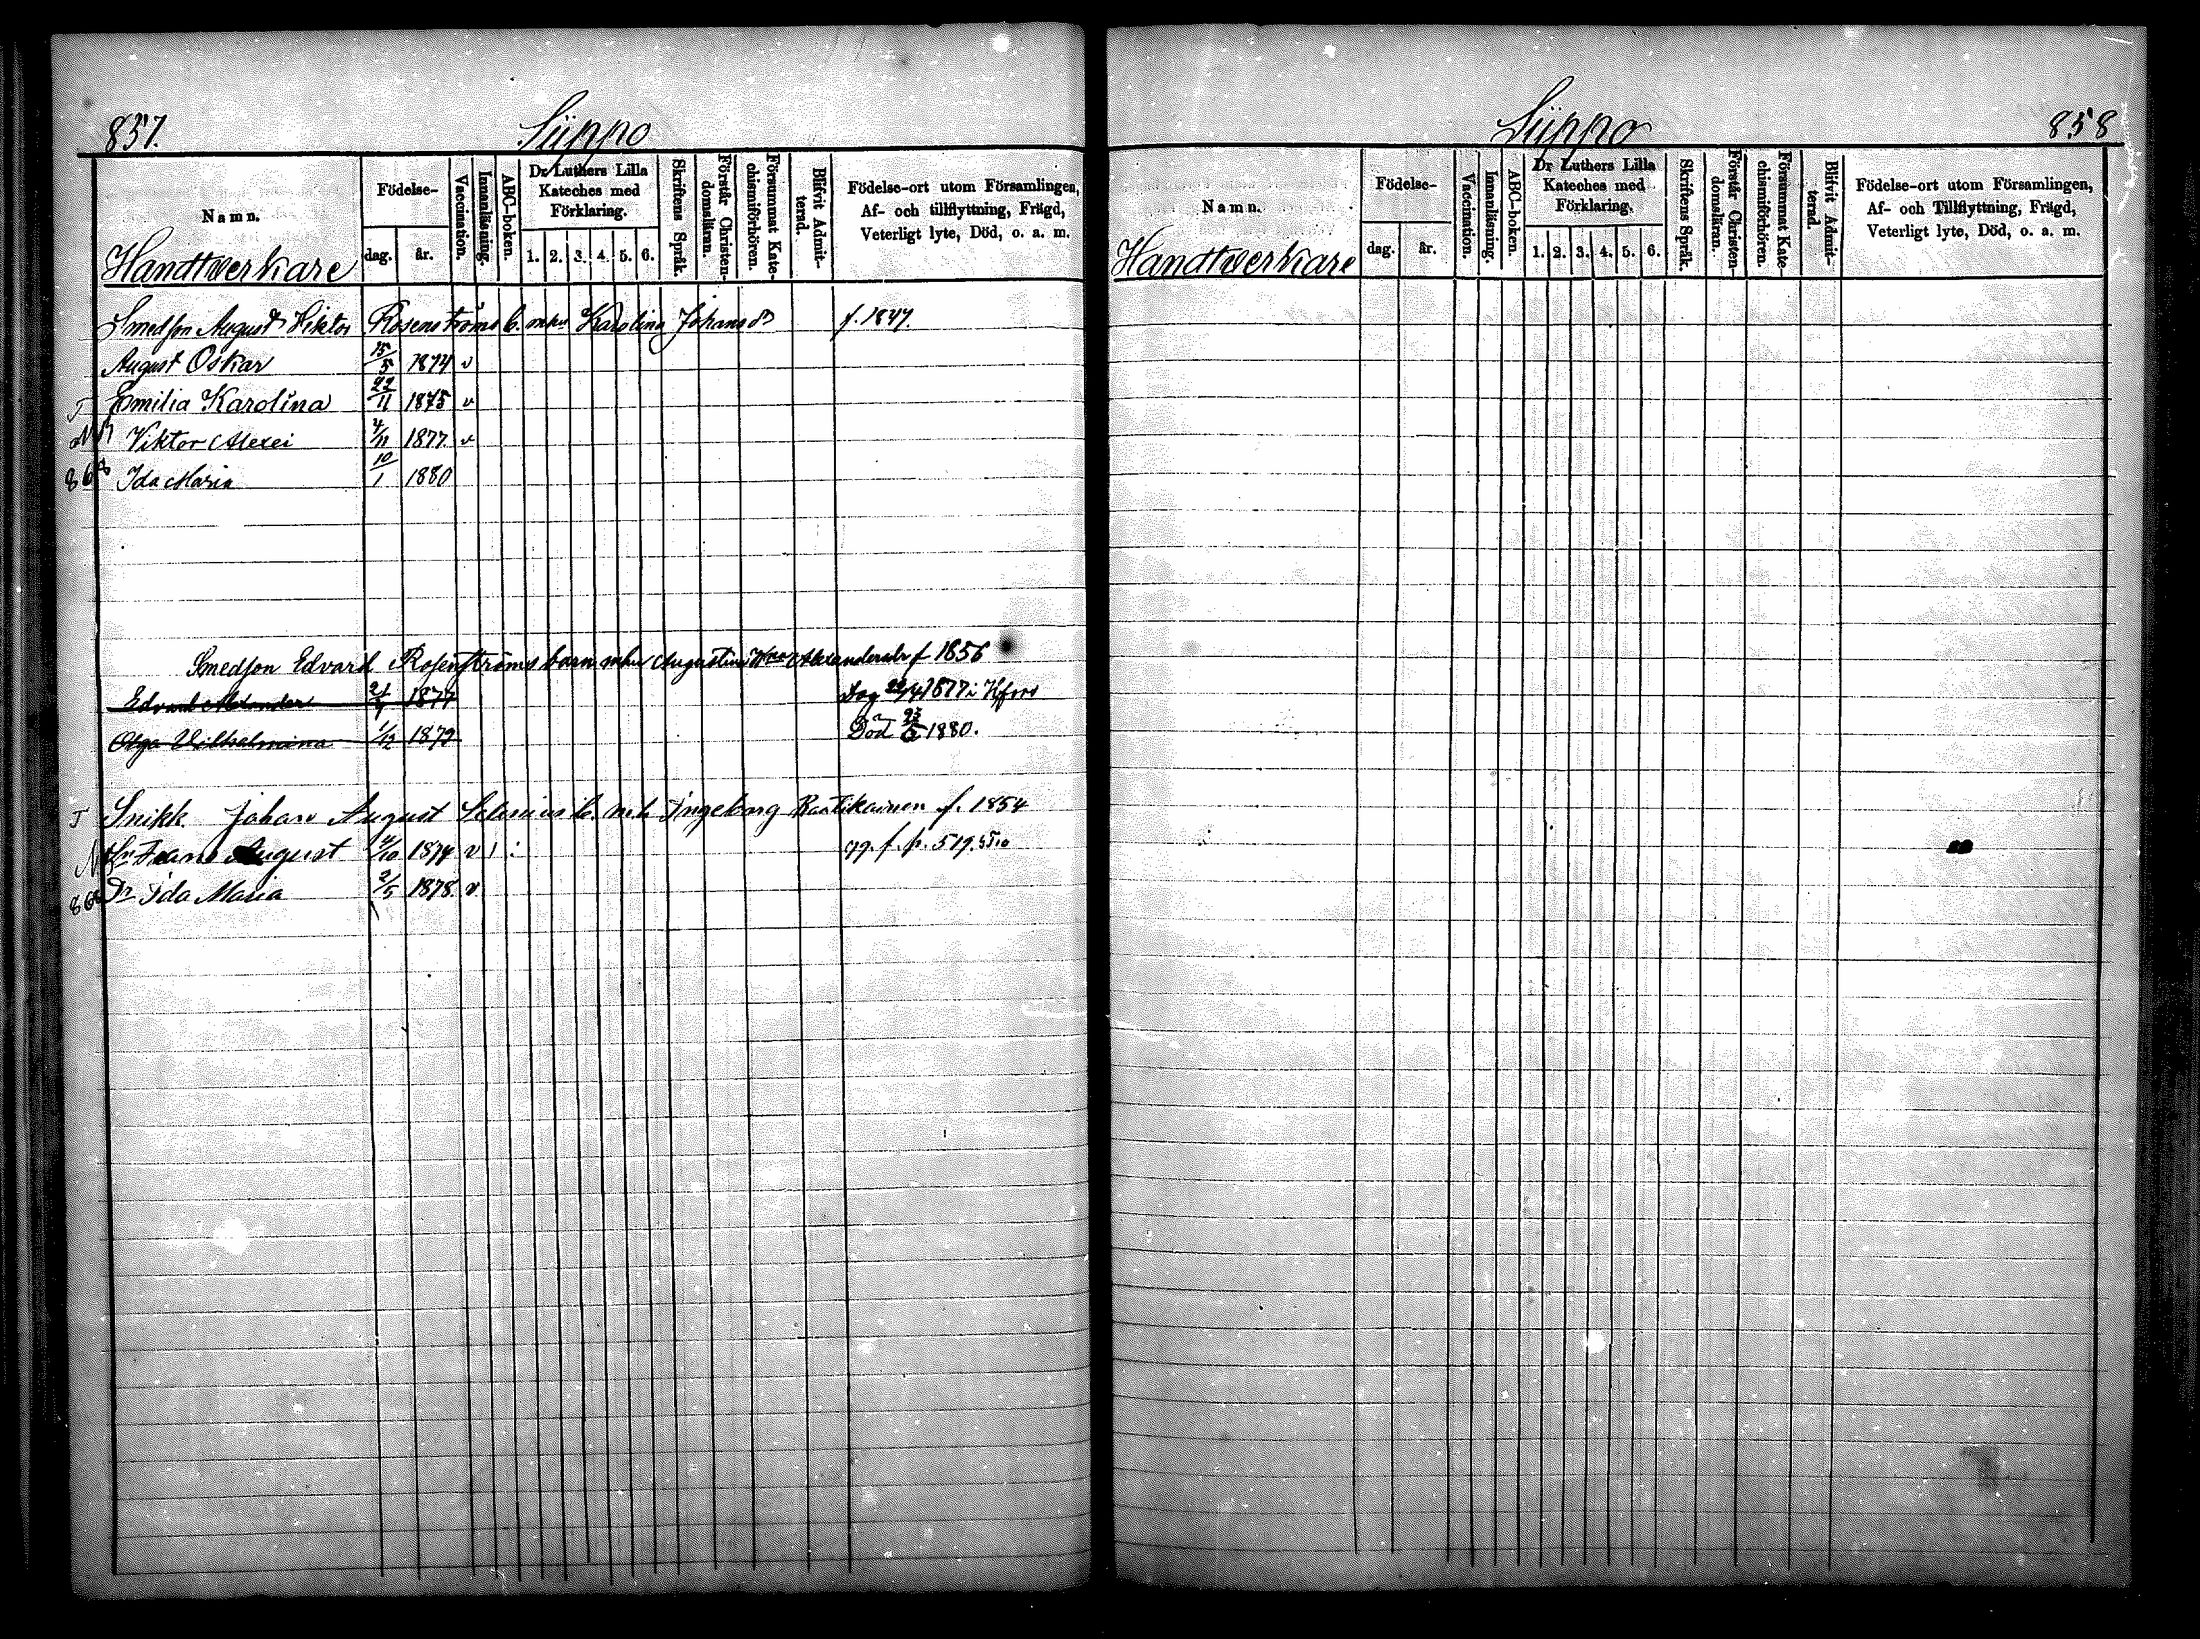 857.
Siippo
Namn.
Handtverkare
Födelse-
dag.
år.
Vaccination.
Innanläsning.
ABC-boken.
Dr Luthers Lilla
Kateches med
Förklaring.
1. 2. 3. 4. 5. 6.
Skriftens Språk.
Förstår Christen-
domsläran.
Försummat Kate-
chismiförhören.
Blifvit Admit-
terad.
Födelse-ort utom Församlingen,
Af- och tillflyttning, Frägd,
Veterligt lyte, Död, o. a. m.
Smedson August Viktor Rosenströms b. mhu Karolina Johansdr f. 1847.
August Oskar 15/5 1874 v
T Emilia Karolina 22/11 1875 v
Viktor Alexei 4/11 1877 v
868 Ida Maria 10/1 1880
Smedson Edvard Rosenströms barn mhu Augustina Alexandersdr f 1856
Edvard Alexander 1877 1877 i Hfors
Olga Vilhelmina 1/12 1879 Död 1880.
T Snikk. Johan August b. Ingeborg Raatikainen f. 1854
Sn Frans August 1874 v 1 : f. p. 519.
868 Dr Ida Maria 2/5 1878 v
Siippo
858
Namn.
Handtverkare
Födelse-
dag.
år.
Vaccination.
Innanläsning.
ABC-boken.
Dr Luthers Lilla
Kateches med
Förklaring.
1. 2. 3. 4. 5. 6.
Skriftens Språk.
Förstår Christen-
domsläran.
Försummat Kate-
chismiförhören.
Blifvit Admit-
terad.
Födelse-ort utom Församlingen,
Af- och Tillflyttning, Frägd,
Veterligt lyte, Död, o. a. m.